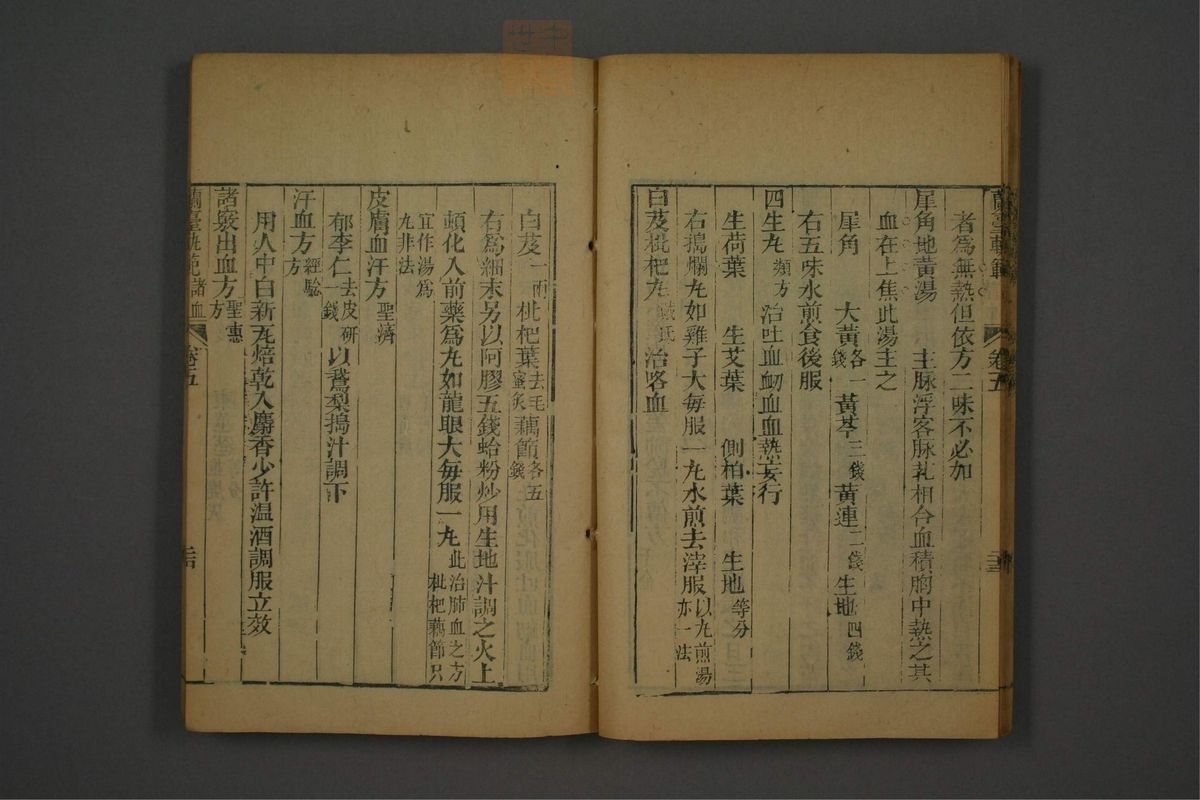 蘭臺軌範 卷五 二十三
者為無熱但依方二味不必加
犀角地黃湯 主脉浮客脉芤相合血積胸中熱之甚
血在上焦此湯主之
犀角 大黃各一錢 黃芩三錢 黃連二錢 生地四錢
右五味水煎食後服
四生丸類方 治吐血衂血血熱妄行
生荷葉 生艾葉 側柏葉 生地等分
右搗爛丸如雞子大每服一丸水煎去滓服以丸煎湯亦一法
白芨枇杷丸戴氏 治咯血
白芨一兩 枇杷葉去毛蜜炙 藕節各五錢
右為細末另以阿膠五錢蛤粉炒用生地汁調之火上
頓化入前藥為丸如龍眼大每服一丸此治肺血之方枇杷藕節只
宜作湯為丸非法
皮膚血汗方聖濟
郁李仁去皮研一錢 以鵞梨搗汁調下
汗血方經驗方
用人中白新瓦焙乾入麝香少許温酒調服立效
諸竅出血方聖惠方
蘭臺軌範 諸血 卷五 二十四